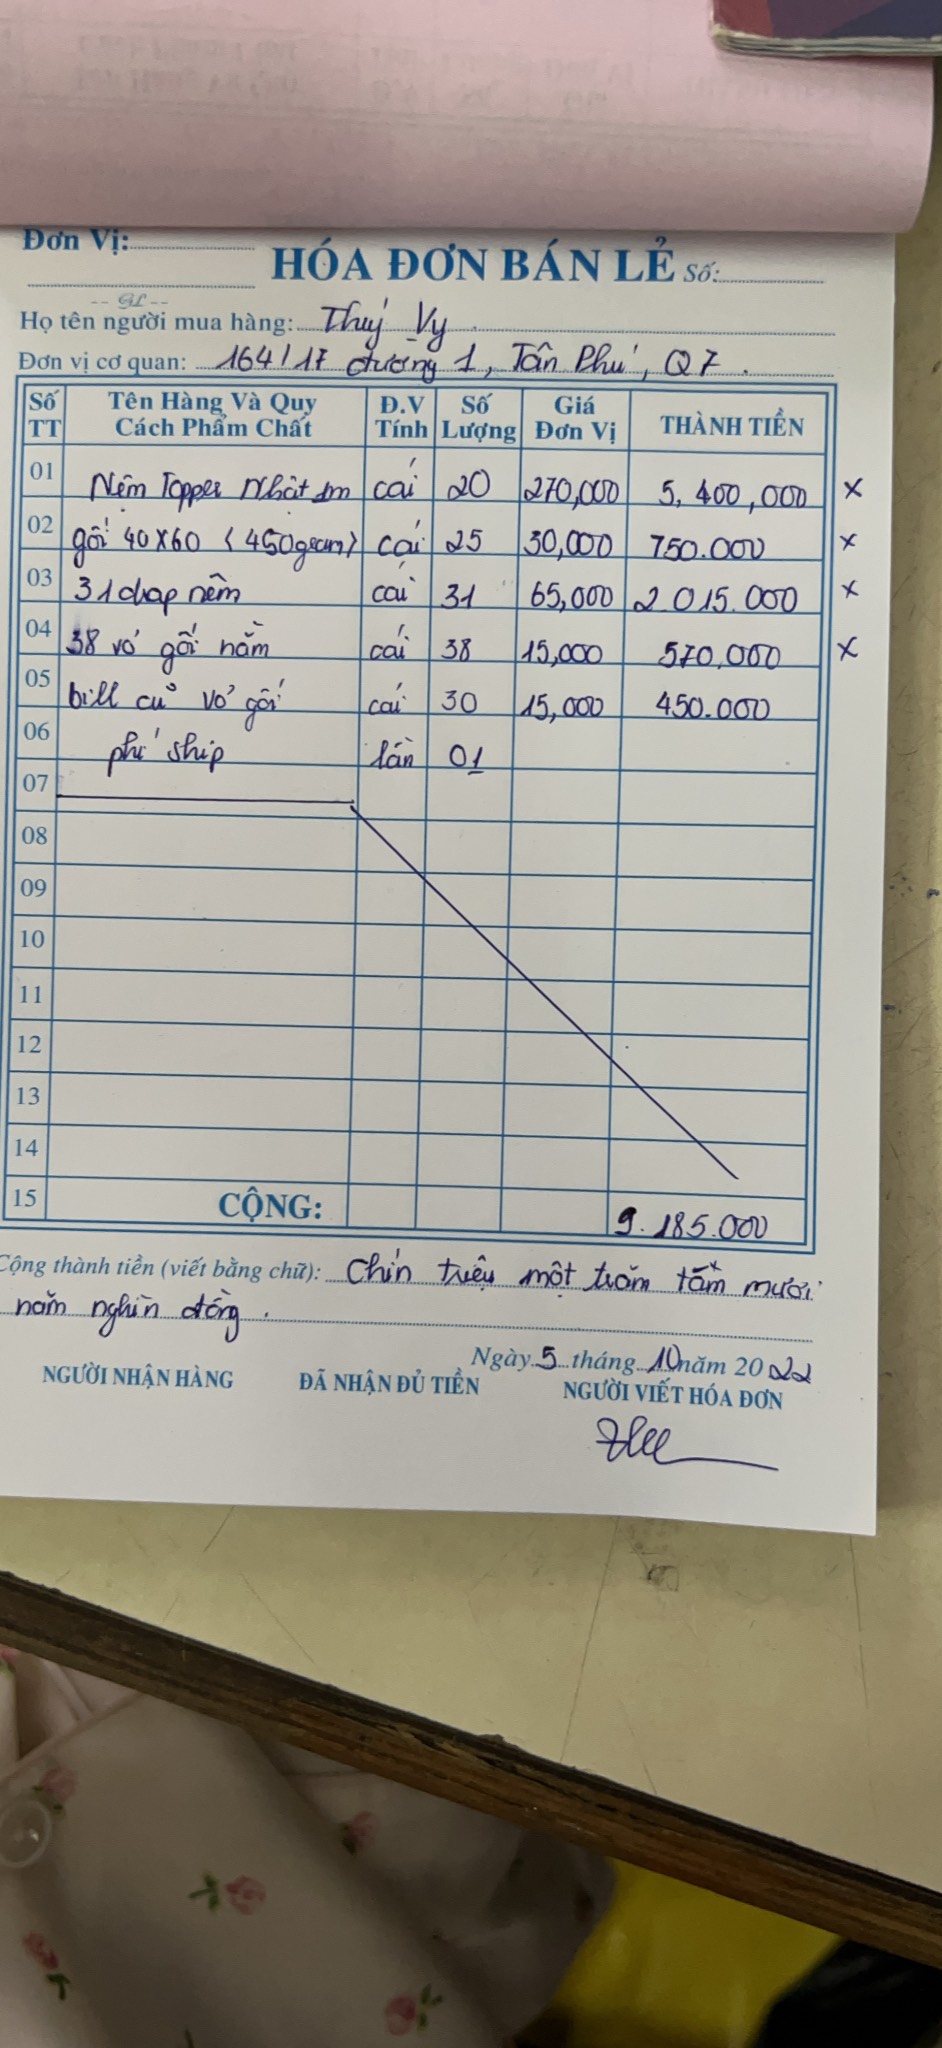 Đơn Vị:
HÓA ĐƠN BÁN LẺ Số:
Họ tên người mua hàng: Thuý Vy
Đơn vị cơ quan: 164/17 đường 1, Tân Phú, Q7.
Số TT Tên Hàng Và Quy Cách Phẩm Chất Đ.V Tính Số Lượng Giá Đơn Vị THÀNH TIỀN
01 Nệm Topper Nhật 1m cái 20 270,000 5,400,000 x
02 gối 40x60 (450gram) cái 25 30,000 750.000 x
03 31 drap nệm cái 31 65,000 2.015.000 x
04 38 vỏ gối nằm cái 38 15,000 570,000 x
05 bill cũ vỏ gối cái 30 15,000 450.000
06 phí ship lần 01
07
08
09
10
11
12
13
14
15 CỘNG: 9.185.000
Cộng thành tiền (viết bằng chữ): Chín triệu một trăm tám mươi
năm nghìn đồng.
Ngày 5 tháng 10 năm 2022
NGƯỜI NHẬN HÀNG ĐÃ NHẬN ĐỦ TIỀN NGƯỜI VIẾT HÓA ĐƠN